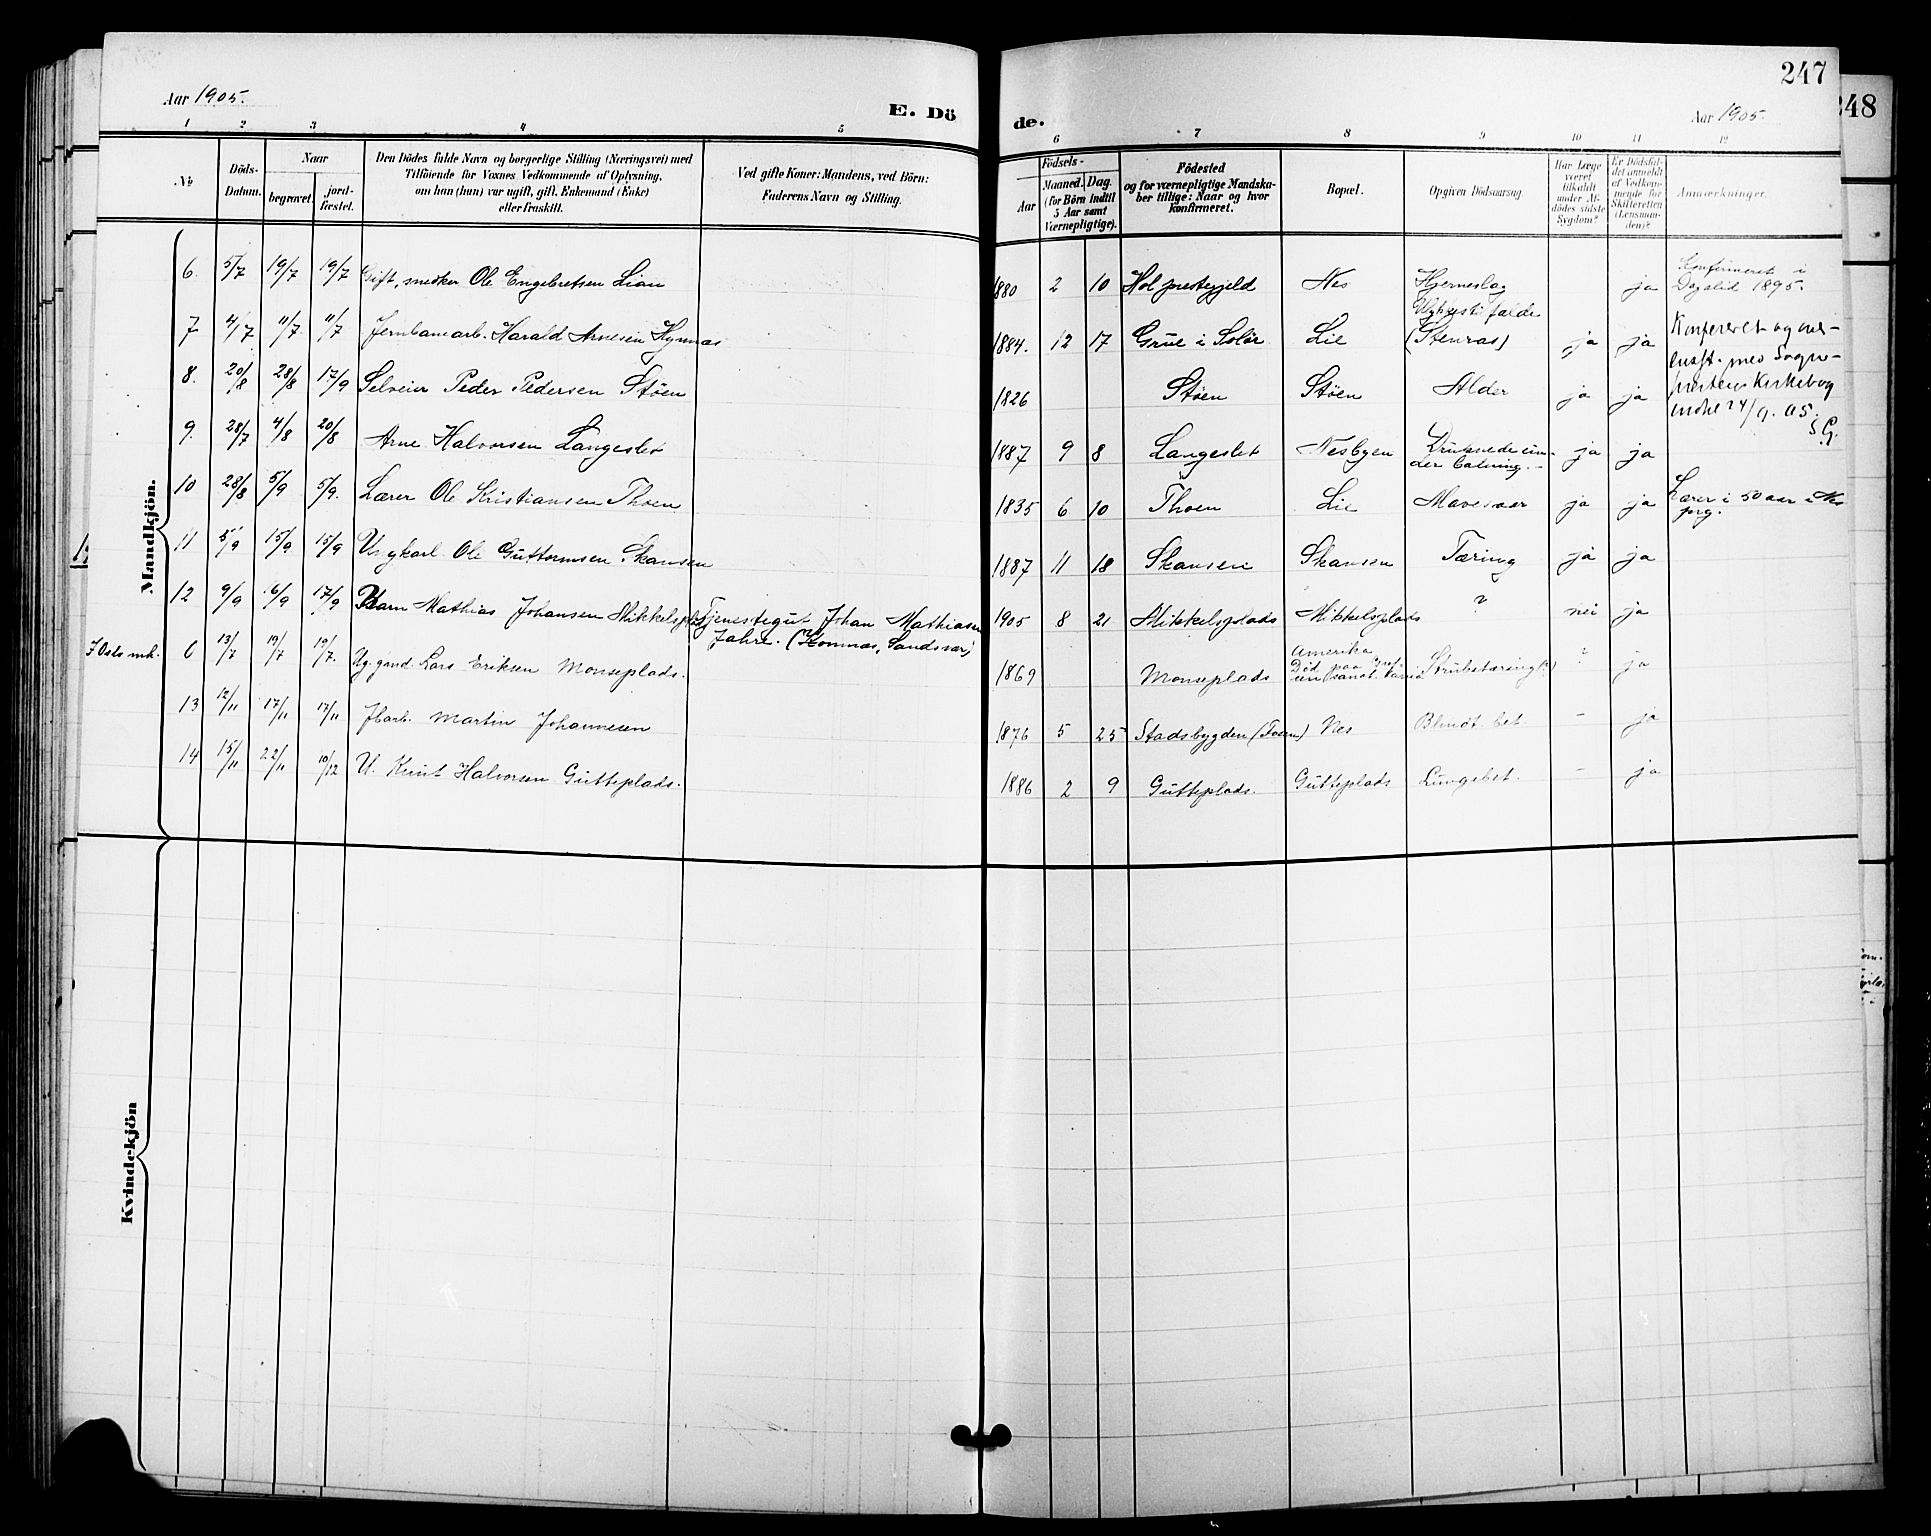 247
248
Aar 1905.
E. Dö
de.
Aar 1905.
1 2 3 4 5 6 7 8 9 10 11 12
№
Döds-
Datum.
Naar
begravet.
jord-
fæstet.
Den Dödes fulde Navn og borgerlige Stilling (Næringsvei) med
Tilföiende for Voxnes Vedkommende af Oplysning,
om han (hun) var ugift, gift, Enkemand (Enke)
eller fraskilt.
Ved gifte Koner: Mandens, ved Börn:
Faderens Navn og Stilling.
Födsels-
Aar
Maaned.
Dag.
(for Börn indtil
5 Aar samt
Værnepligtige).
Födested
og for værnepligtige Mandska-
ber tillige: Naar og hvor
konfirmeret.
Bopæl.
Opgiven Dödsaarsag.
Har Læge
været
tilkaldt
under Af-
dödes sidste
Sygdom?
Er Dödsfal-
det anmeldt
af Vedkom-
mende for
Skifteretten
(Lensman-
den)?
Anmærkninger.
Mandkjön.
6. 5/7 19/7 19/7 Gift, snedker Ole Engebretsen Lian 1880 2 10 Hol prestegjeld Nes Hjerneslag ja Konfirmeret i
Dagalid 1895.
7 4/7 11/7 11/7 Jernbanearb. Harald Arnesen Hynnas 1884. 12 17 Grue i Solør Lie
(Stenras) ja ja Konfereret og
med Sogne-
prestens Kirkebog
24/9. 05.
S.G.
8. 20/8 28/8 17/9 Selveier Peder Pedersen Støen 1826 Støen Støen Alder ja ja
9. 28/7 4/8 20/8 Arne Halvorsen Langeslet 1887 9 8 Langeslet Nesbyen Druknede un-
der badning. ja ja
10 28/8 5/9 5/9. Lærer Ole Kristiansen Thoen 1835 6 10 Thoen Lie Mavesaar ja ja Lærer i 50 aar i Nes
prg.
11 5/9 15/9 15/9 Ungkarl Ole Guttormsen Skansen 1887 11 18 Skansen Skansen Tæring ja ja
12 9/9 16/9 17/9 Barn Mathias Johansen Mikkelsplads Tjenestegut Johan Mathiasen
Jahre. (Komnæs, Sandsvær) 1905 8 21 Mikkelsplads Mikkelsplads ? nei ja
6 13/7 19/7 19/7. Ug. gmd. Lars Eriksen Monseplads. 1869 Monseplads Amerika
Død paa
Strubetæring(?) ? ja
13 12/11 17/11 17/11 Jbarb. Martin Johannesen 1876 5 25 Stadsbygden (Fosen) Nes ja
14 15/11 22/11 10/12 U. Knut Halvorsen Gutteplads. 1886 2 9 Gutteplads. Gutteplads Lungebet. - ja
Kvindekjön